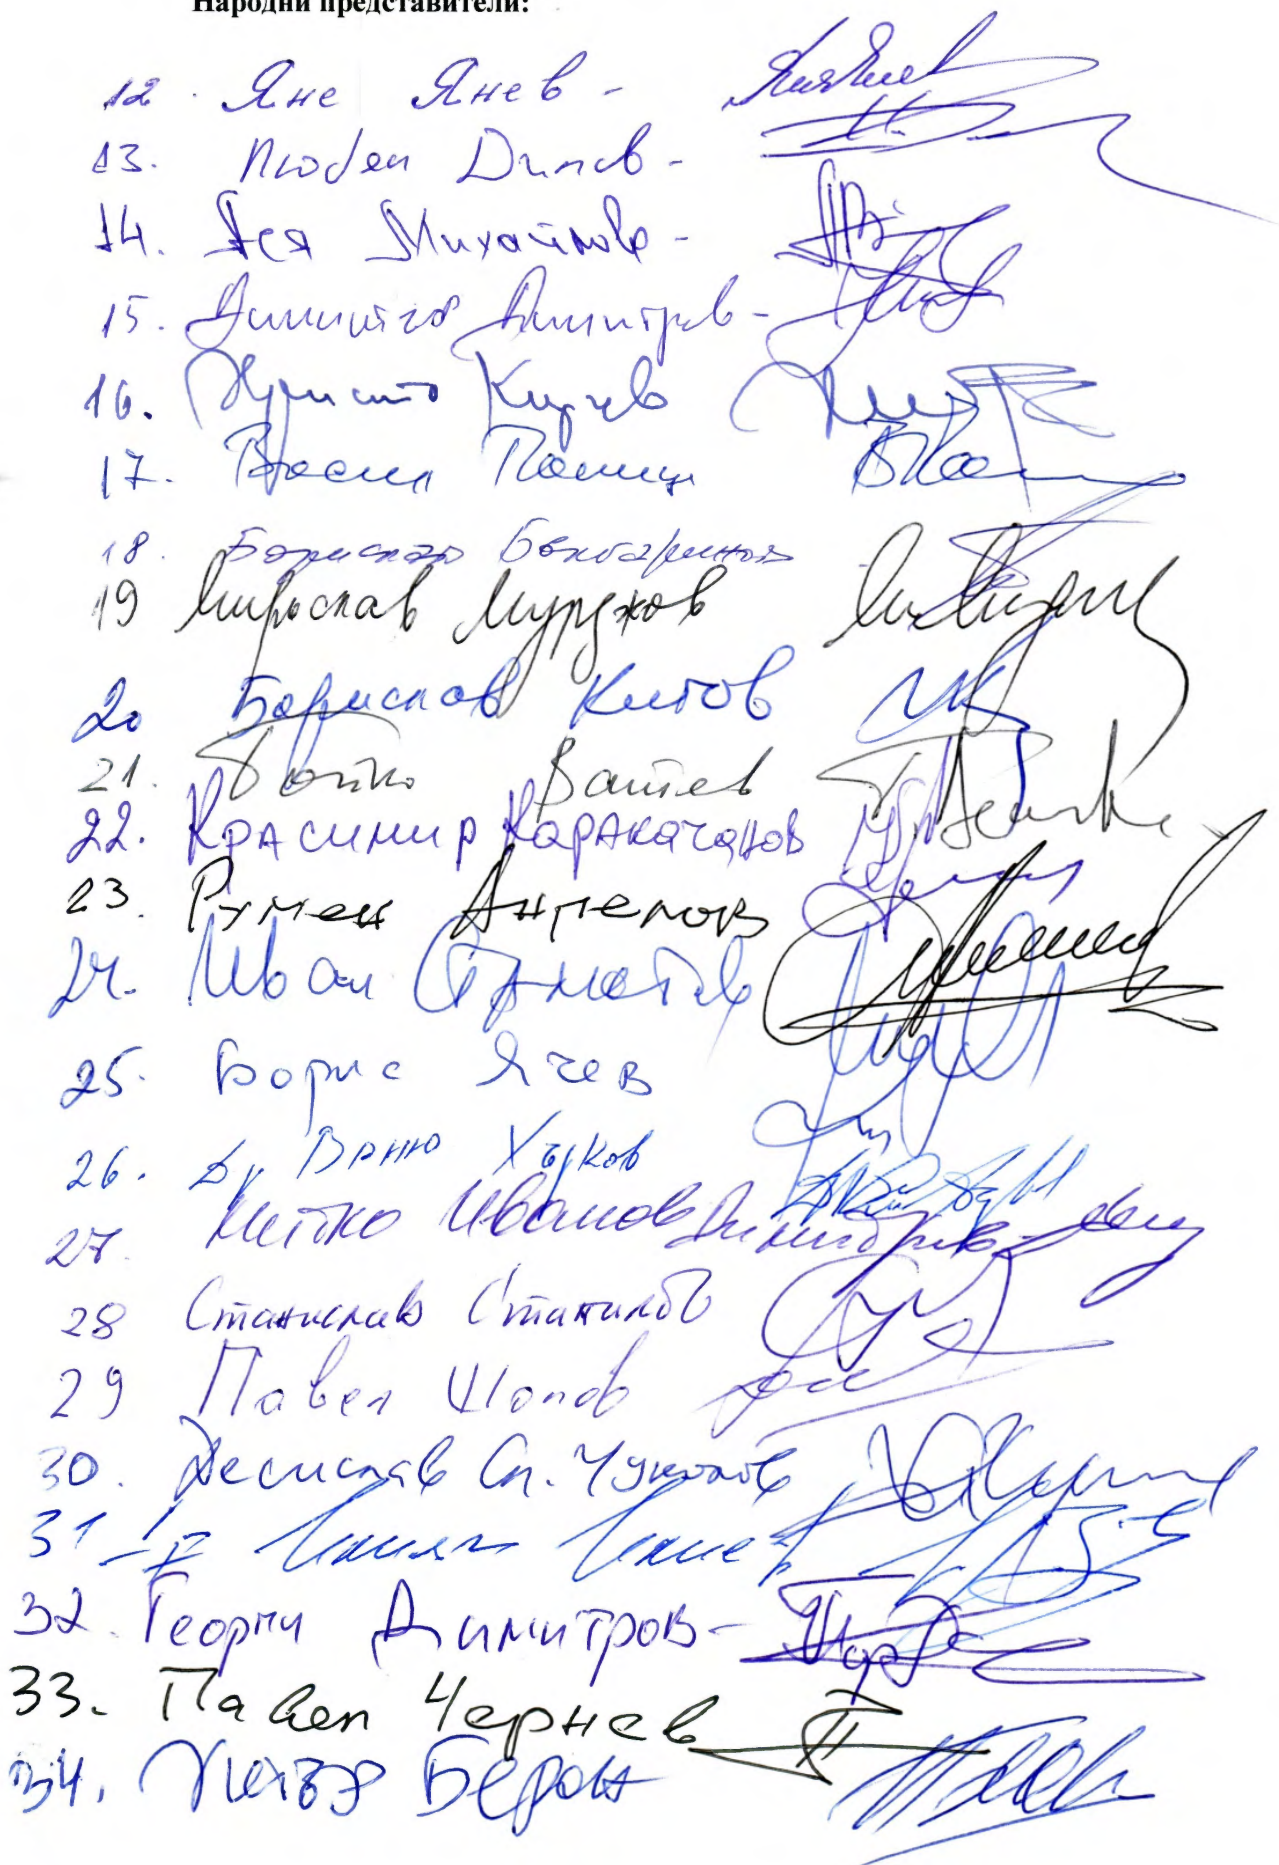 Народни представители:
12. Яне Янев -
13. Любен Дилов -
14. Ася Михайлова -
15. Димитър Димитров -
16. Христо Кирчев
17. Васил Паница
18. Борислав Българинов
19 Мирослав Мурджов
20 Борислав Китов
21. Бойко Ватев
22. Красимир Каракачанов
23. Румен Ангелов
24. Иван Стаматов
25. Борис Ячев
26. Д-р Ваньо Хърков
27. Митко Иванов Димитров -
28 Станислав Станилов
29 Павел Шопов
30. Десислав Сл. Чуколов
31
32. Георги Димитров -
33. Павел Чернев
34. Петър Берон